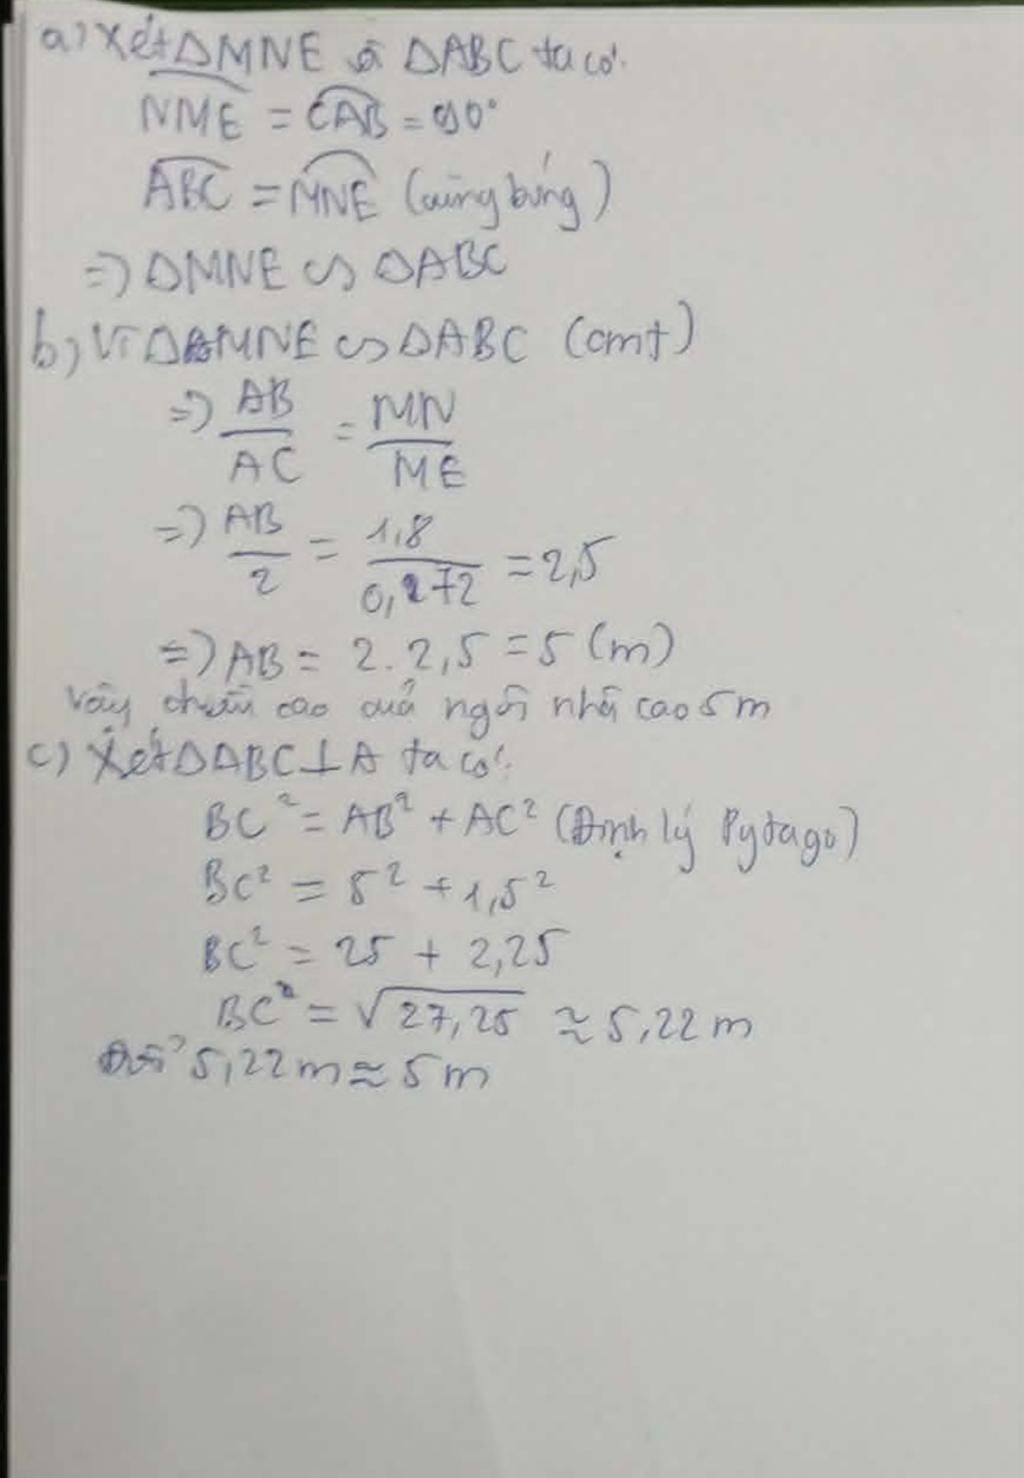 a) Xét ΔMNE và ΔABC ta có:
NME = CAB = 90°
ABC = MNE (cùng bóng)
=> ΔMNE ∽ ΔABC
b) Vì ΔMNE ∽ ΔABC (cmt)
=> AB/AC = MN/ME
=> AB/2 = 1,8/0,72 = 2,5
=> AB = 2.2,5 = 5 (m)
Vậy chiều cao của ngôi nhà cao 5m
c) Xét ΔABC⊥A ta có:
BC² = AB² + AC² (Định lý Pytago)
BC² = 5² + 1,5²
BC² = 25 + 2,25
BC = √27,25 ≈ 5,22 m
5,22m ≈ 5m